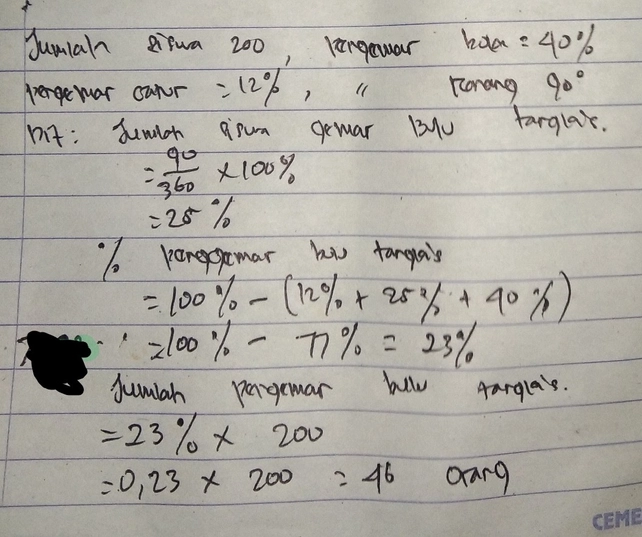 Jumlah siswa 200, pengemar bola = 40%
pengemar catur = 12%, " renang 90°
Dit: Jumlah siswa gemar bulu tangkis.
= 90/360 × 100%
= 25 %
% penggemar bulu tangkis
= 100% - (12% + 25% + 40%)
= 100% - 77% = 23%
Jumlah pengemar bulu tangkis.
= 23% × 200
= 0,23 × 200 = 46 orang
CEME